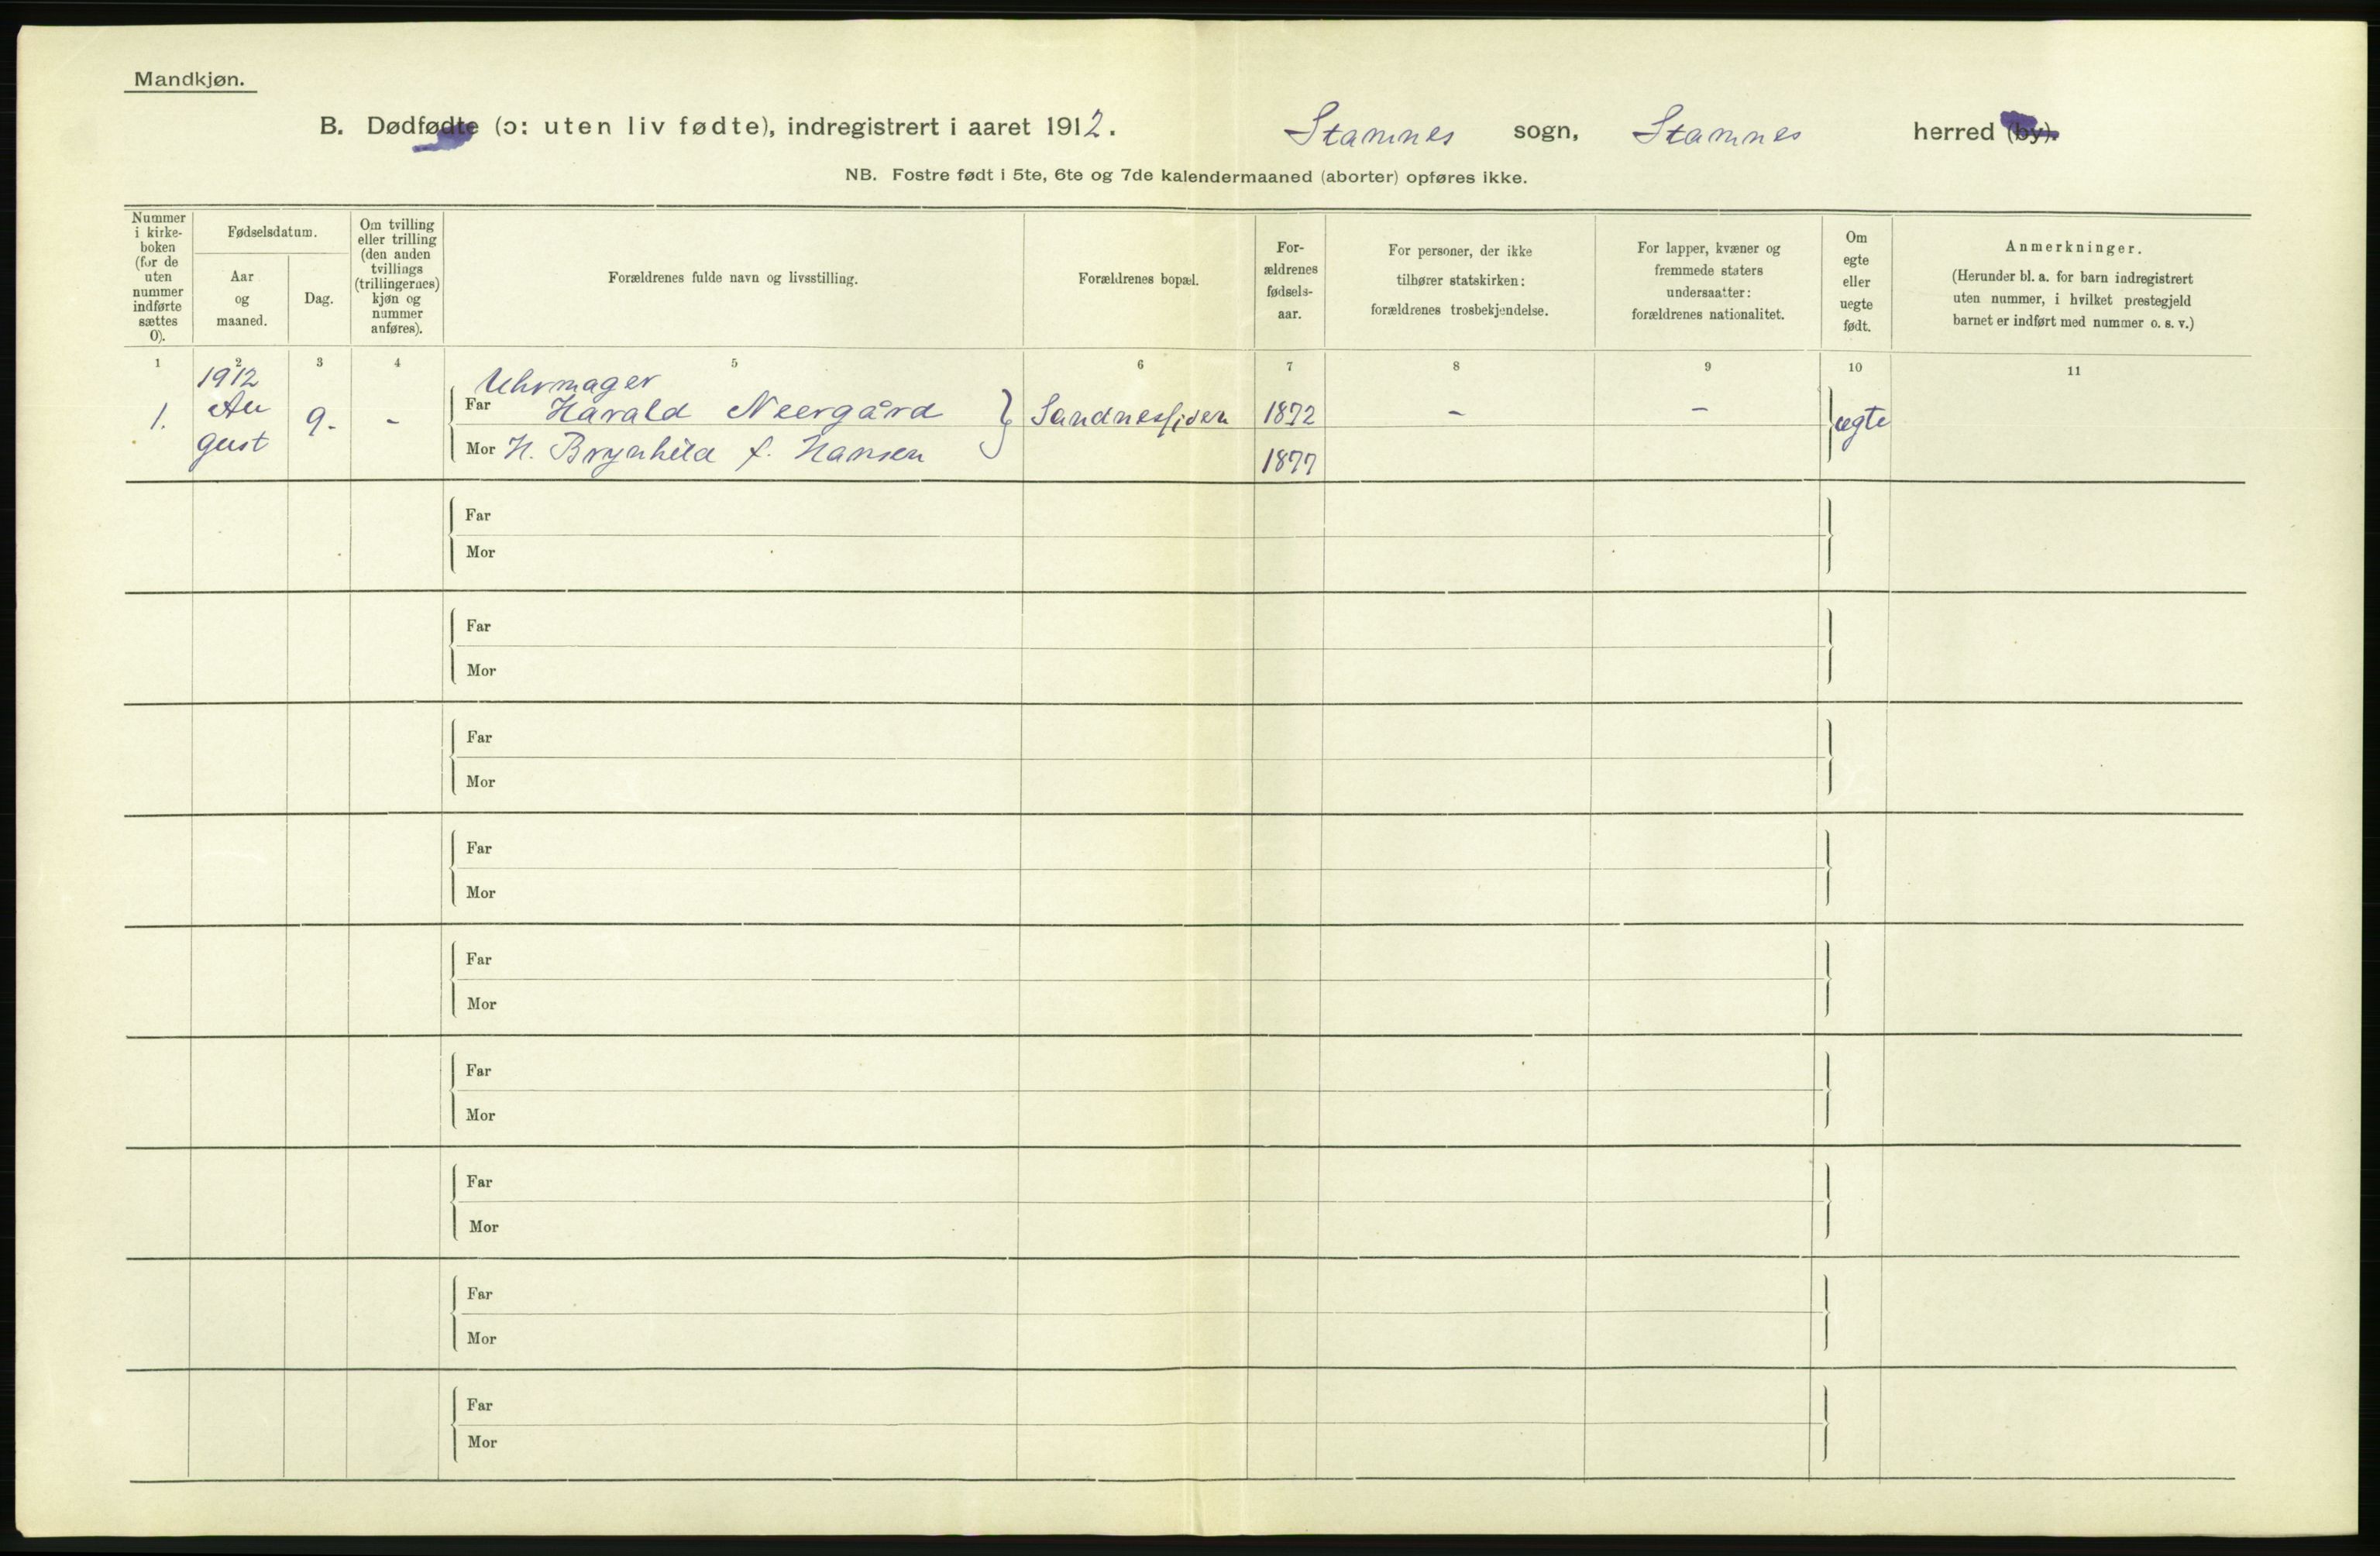 Mandkjøn.
B. Dødfødte (ɔ: uten liv fødte), indregistrert i aaret 1912. Stamnes sogn, Stamnes herred (by).
NB. Fostre født i 5te, 6te og 7de kalendermaaned (aborter) opføres ikke.
Nummer
i kirke-
boken
(for de
uten
nummer
indførte
sættes
0).
Fødselsdatum.
Aar
og
maaned.
Dag.
Om tvilling
eller trilling
(den anden
tvillings
(trillingernes)
kjøn og
nummer
anføres).
Forældrenes fulde navn og livsstilling.
Forældrenes bopæl.
For-
ældrenes
fødsels-
aar.
For personer, der ikke
tilhører statskirken:
forældrenes trosbekjendelse.
For lapper, kvæner og
fremmede staters
undersaatter:
forældrenes nationalitet.
Om
egte
eller
uegte
født.
Anmerkninger.
(Herunder bl. a. for barn indregistrert
uten nummer, i hvilket prestegjeld
barnet er indført med nummer o. s. v.)
1 2 3 4 5 6 7 8 9 10 11
1.
1912
Au
gust
9.
-
Uhrmager
Far Harald Neergård
Mor H. Brynhild f. Hansen
Sandnessjøen
1872
1877
-
-
ægte
Far
Mor
Far
Mor
Far
Mor
Far
Mor
Far
Mor
Far
Mor
Far
Mor
Far
Mor
Far
Mor